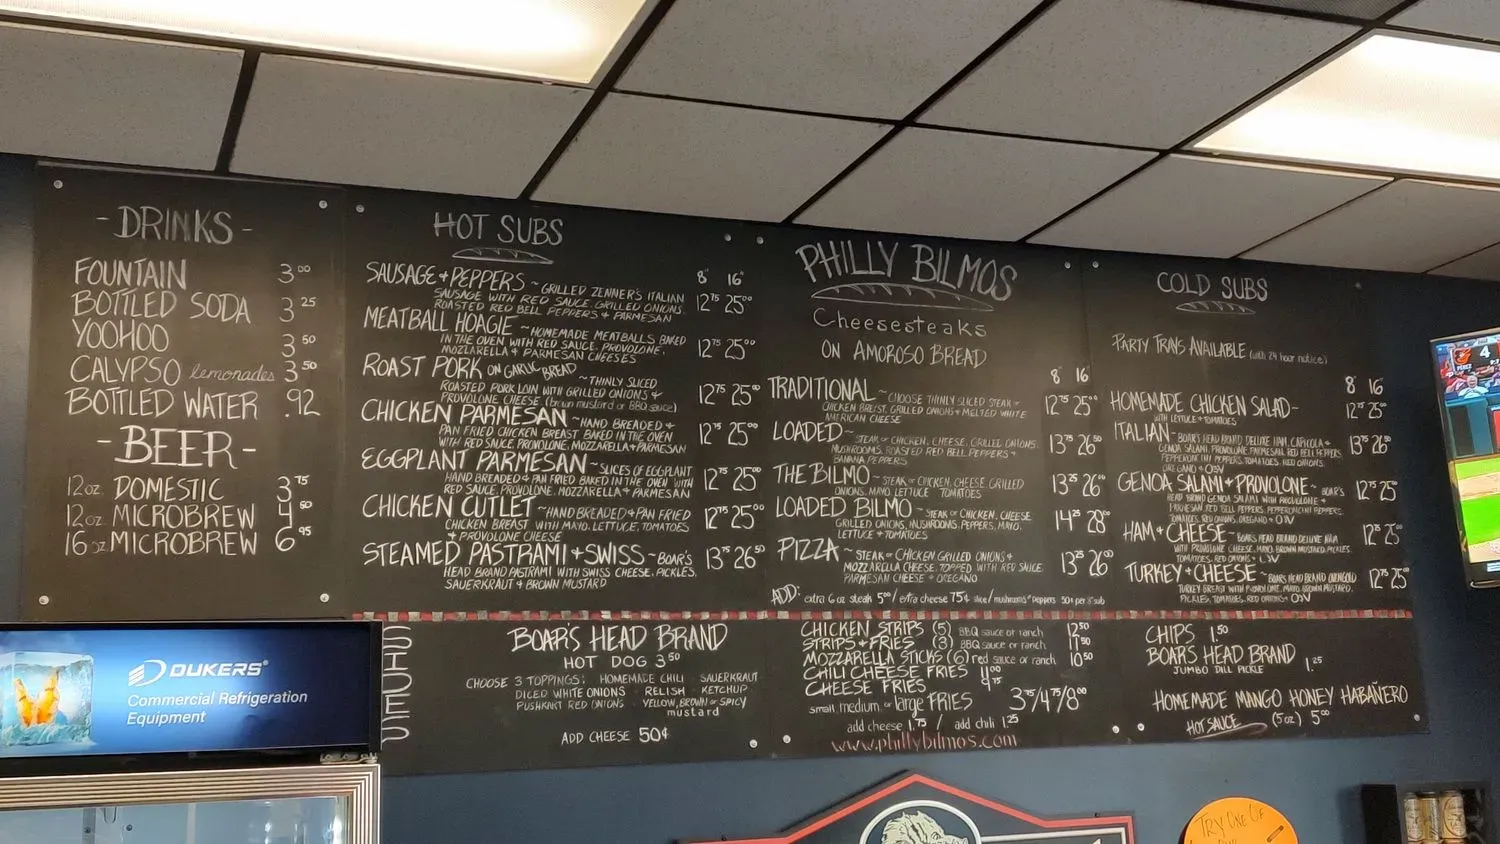 - DRINKS -
FOUNTAIN 3.00
BOTTLED SODA 3.25
YOOHOO 3.50
CALYPSO lemonades 3.50
BOTTLED WATER .92
- BEER -
12oz. DOMESTIC 3.75
12oz. MICROBREW 4.50
16 oz. MICROBREW 6.95
HOT SUBS
8" 16"
SAUSAGE + PEPPERS ~ GRILLED ZENNER'S ITALIAN
SAUSAGE WITH RED SAUCE, GRILLED ONIONS, 12.75 25.00
ROASTED RED BELL PEPPERS + PARMESAN
MEATBALL HOAGIE ~ HOMEMADE MEATBALLS BAKED
IN THE OVEN WITH RED SAUCE, PROVOLONE, 12.75 25.00
MOZZARELLA + PARMESAN CHEESES
ROAST PORK ON GARLIC BREAD ~ THINLY SLICED
ROASTED PORK LOIN WITH GRILLED ONIONS + 12.75 25.00
PROVOLONE CHEESE. (brown mustard or BBQ sauce)
CHICKEN PARMESAN ~ HAND BREADED +
PAN FRIED CHICKEN BREAST BAKED IN THE OVEN 12.75 25.00
WITH RED SAUCE, PROVOLONE, MOZZARELLA + PARMESAN
EGGPLANT PARMESAN ~ SLICES OF EGGPLANT
HAND BREADED + PAN FRIED BAKED IN THE OVEN WITH 12.75 25.00
RED SAUCE, PROVOLONE, MOZZARELLA + PARMESAN
CHICKEN CUTLET ~ HAND BREADED + PAN FRIED
CHICKEN BREAST WITH MAYO, LETTUCE, TOMATOES 12.75 25.00
+ PROVOLONE CHEESE
STEAMED PASTRAMI + SWISS ~ BOAR'S 13.75 26.50
HEAD BRAND PASTRAMI WITH SWISS CHEESE, PICKLES,
SAUERKRAUT + BROWN MUSTARD
PHILLY BILMOS
Cheesesteaks
ON AMOROSO BREAD
8" 16"
TRADITIONAL ~ CHOOSE THINLY SLICED STEAK or
CHICKEN BREAST, GRILLED ONIONS + MELTED WHITE 12.75 25.00
AMERICAN CHEESE
LOADED ~ STEAK or CHICKEN, CHEESE, GRILLED ONIONS,
MUSHROOMS, ROASTED RED BELL PEPPERS + 13.75 26.50
BANANA PEPPERS
THE BILMO ~ STEAK or CHICKEN, CHEESE, GRILLED
ONIONS, MAYO, LETTUCE + TOMATOES 13.25 26.00
LOADED BILMO ~ STEAK or CHICKEN, CHEESE,
GRILLED ONIONS, MUSHROOMS, PEPPERS, MAYO, 14.25 28.00
LETTUCE + TOMATOES
PIZZA ~ STEAK or CHICKEN, GRILLED ONIONS +
MOZZARELLA CHEESE, TOPPED WITH RED SAUCE, 13.25 26.00
PARMESAN CHEESE + OREGANO
ADD: extra 6 oz steak 5.00 / extra cheese 75¢ slice / mushrooms or peppers 50¢ per 8" sub
COLD SUBS
PARTY TRAYS AVAILABLE (with 24 hour notice)
8" 16"
HOMEMADE CHICKEN SALAD ~ 12.75 25.00
WITH LETTUCE + TOMATOES
ITALIAN ~ BOAR'S HEAD DELUXE HAM, CAPICOLA + 13.75 26.50
GENOA SALAMI, PROVOLONE, PARMESAN, RED BELL PEPPERS
PEPPERONCINI PEPPERS, TOMATOES, RED ONIONS,
OREGANO + O+V
GENOA SALAMI + PROVOLONE ~ BOAR'S 12.75 25.00
HEAD BRAND GENOA SALAMI WITH PROVOLONE +
PARMESAN, RED BELL PEPPERS, PEPPERONCINI PEPPERS,
TOMATOES, RED ONIONS, OREGANO + O+V
HAM + CHEESE ~ BOARS HEAD BRAND DELUXE HAM 12.75 25.00
WITH PROVOLONE CHEESE, MAYO, BROWN MUSTARD, PICKLES,
TOMATOES, RED ONIONS +
TURKEY + CHEESE ~ BOARS HEAD BRAND OVENGOLD 12.75 25.00
TURKEY BREAST WITH PROVOLONE, MAYO, BROWN MUSTARD,
PICKLES, TOMATOES, RED ONIONS + O+V
SIDES
BOAR'S HEAD BRAND
HOT DOG 3.50
CHOOSE 3 TOPPINGS: HOMEMADE CHILI SAUERKRAUT
DICED WHITE ONIONS RELISH KETCHUP
PUSHKART RED ONIONS YELLOW, BROWN or SPICY
mustard
ADD CHEESE 50¢
CHICKEN STRIPS (5) BBQ sauce or ranch 12.50
STRIPS + FRIES (3) BBQ sauce or ranch 11.50
MOZZARELLA STICKS (6) red sauce or ranch 10.50
CHILI CHEESE FRIES 11.00
CHEESE FRIES 9.75
small, medium, or large FRIES 3.75/4.75/8.00
add cheese 1.75 / add chili 1.25
www.phillybilmos.com
CHIPS 1.50
BOAR'S HEAD BRAND
JUMBO DILL PICKLE 1.25
HOMEMADE MANGO HONEY HABAÑERO
HOT SAUCE (5oz) 5.00
DUKERS®
Commercial Refrigeration
Equipment
TRY ONE OF
OUR
4